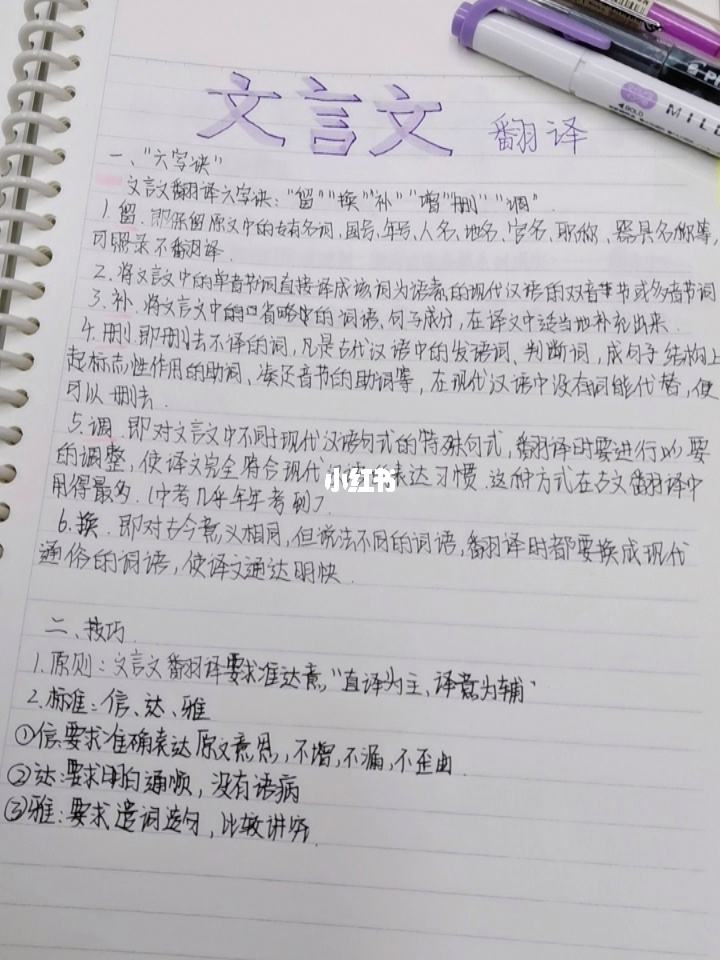 文言文 翻译
一、"六字诀"
文言文翻译六字诀："留""换""补""增""删""调"。
1.留.即保留原文中的专有名词、国号、年号、人名、地名、官名、职称、器具名称等，
可照录不翻译.
2.将文言文中的单音节词直接译成该词为语素的现代汉语的双音节或多音节词
3.补.将文言文中的省略的词语、句子成分，在译文中适当地补充出来.
4.删.即删去不译的词，凡是古代汉语中的发语词、判断词，成句子结构上
起标志性作用的助词、凑足音节的助词等，在现代汉语中没有词能代替，便
可以删去.
5.调.即对文言文中不同于现代汉语句式的特殊句式，翻译时要进行必要
的调整，使译文完全符合现代 表达习惯.这种方式在古文翻译中
用得最多.(中考几乎年年考到)
6.换.即对古今意义相同，但说法不同的词语，翻译时都要换成现代
通俗的词语，使译文通达明快.
二、技巧
1.原则：文言文翻译要求准达意，"直译为主、译意为辅"
2.标准：信、达、雅
①信要求准确表达原文意思，不增，不漏，不歪曲.
②达：要求明白通顺，没有语病
③雅：要求遣词造句，比较讲究.
小红书
MILD
BOLD